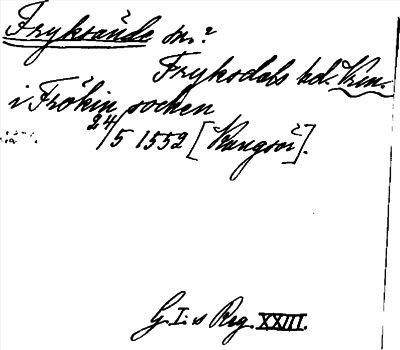 Fryksände sn.?
Fryksdals hd. Vrm.
i Frökin socken
24/5 1552 [Kungsör].
G.I:s Reg. XXIII.